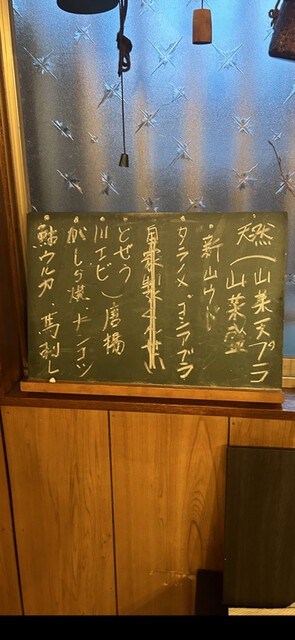 天然（山菜天プラ
山菜盛
新山ウド
タラノメ・コシアブラ
自家製くん製
どぜう）唐揚
川エビ
かしら焼・ナンコツ
鮎ウルカ・馬刺し